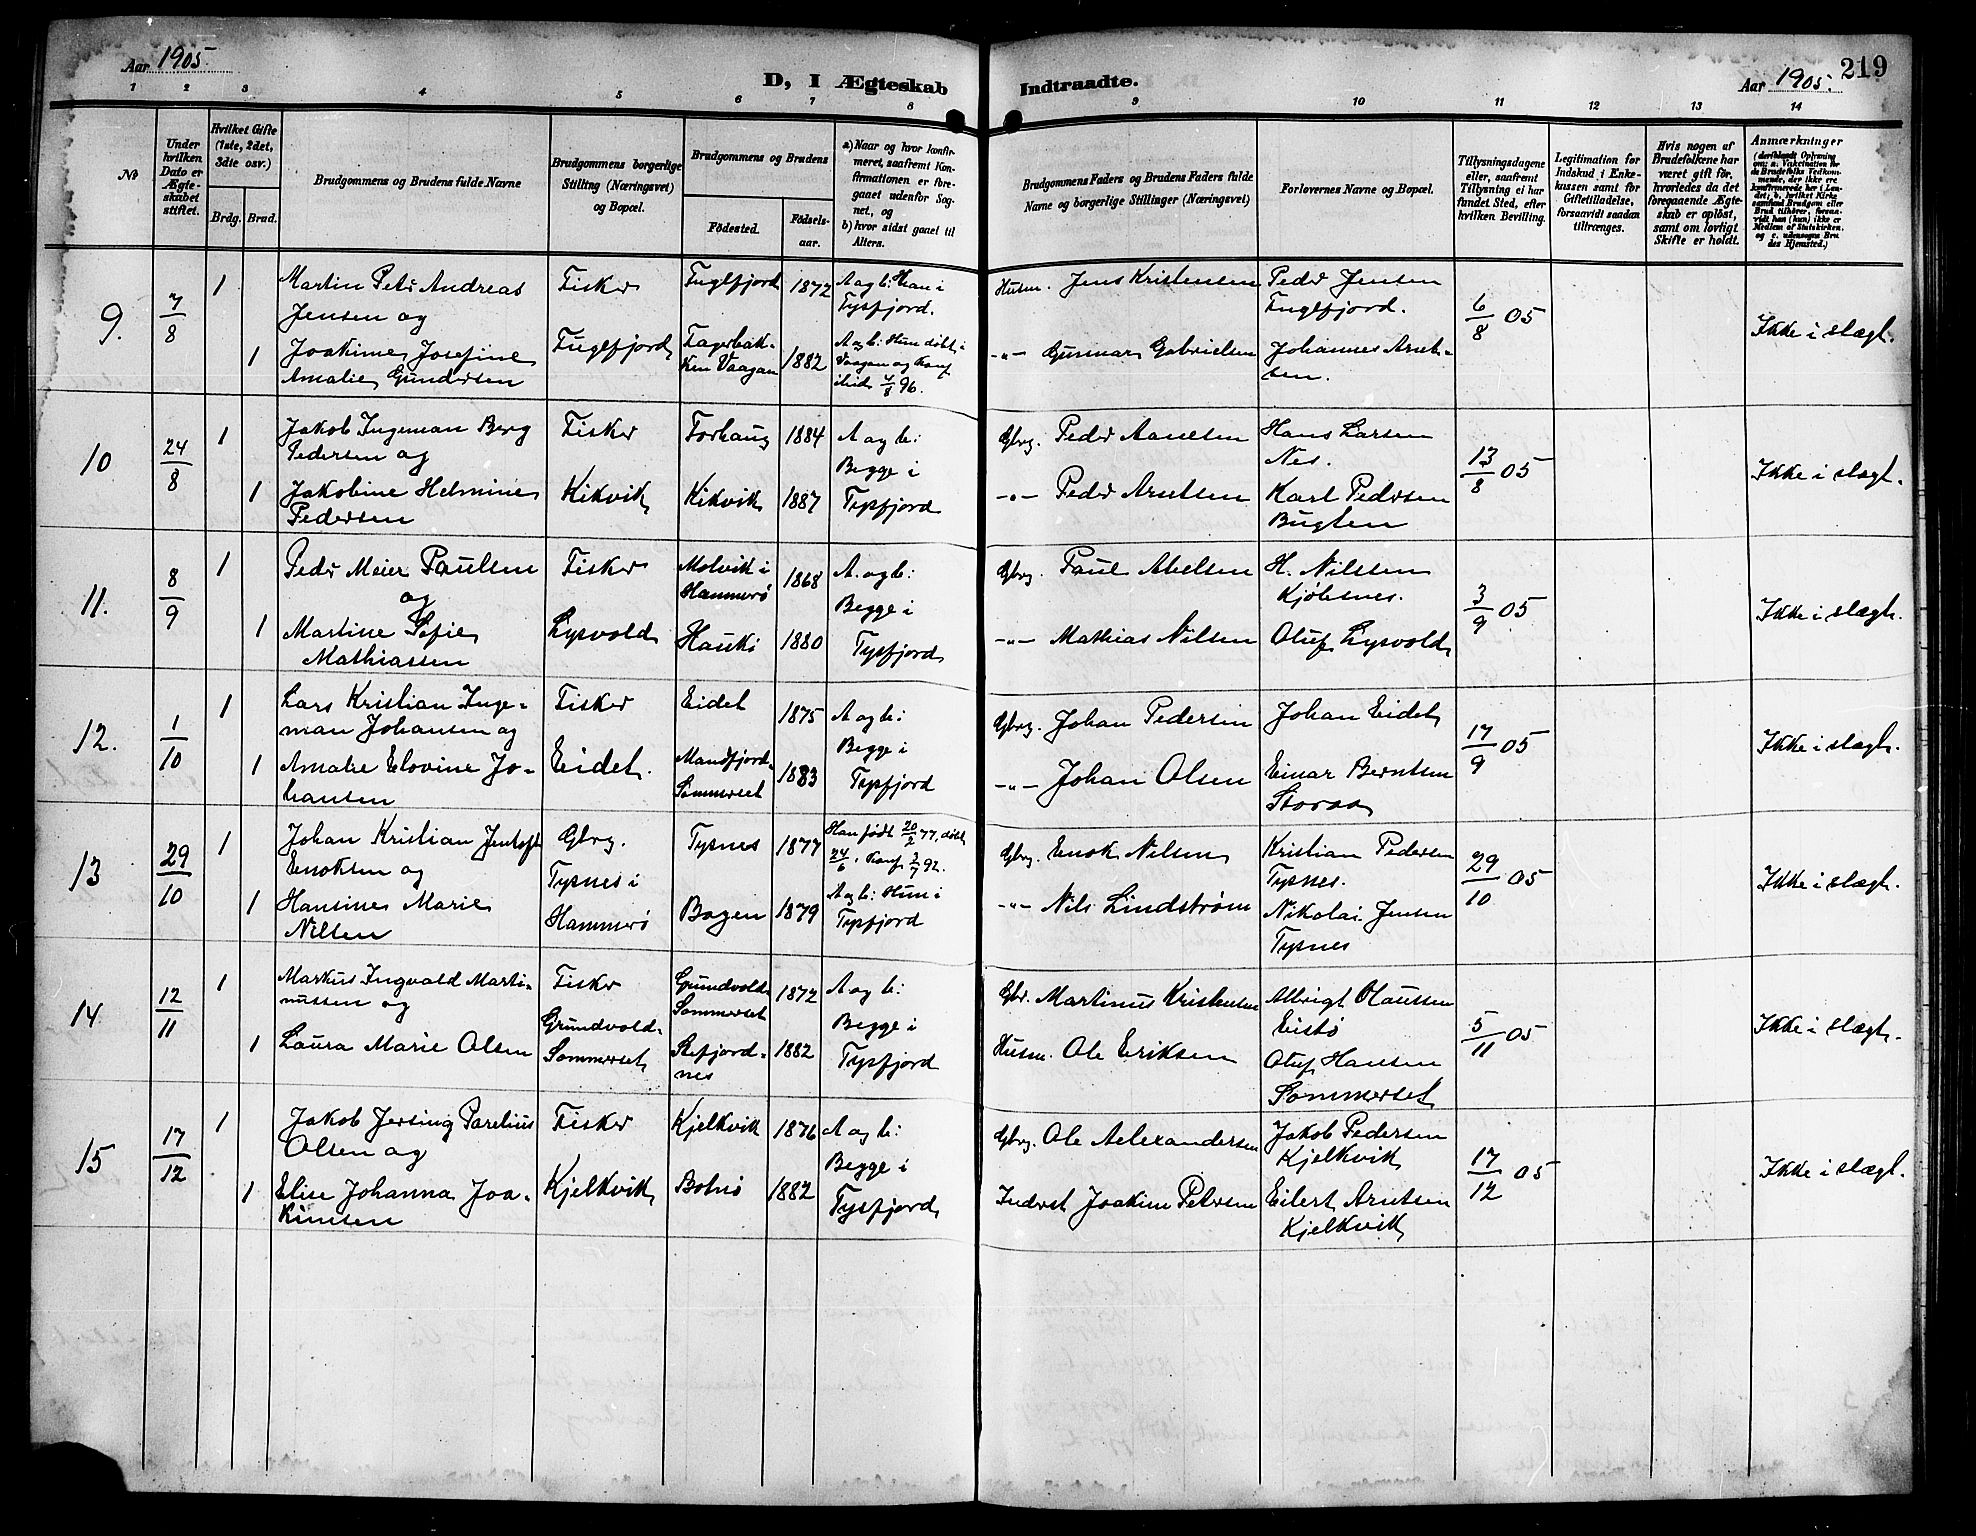 Aar 1905.
D, I Ægteskab Indtraadte.
Aar 1905.
219
1 2 3 4 5 6 7 8 9 10 11 12 13 14
No
Under hvilken Dato er Ægteskabet stiftet.
Hvilket Gifte (1ste, 2det, 3die osv.)
Brdg. Brud.
Brudgommens og Brudens fulde Navne
Brudgommens borgerlige Stilling (Næringsvei) og Bopæl.
Brudgommens og Brudens
Fødested.
Fødselsaar.
a) Naar og hvor konfirmeret, saafremt Konfirmationen er foregaaet udenfor Sognet, og
b) hvor sidst gaaet til Alters.
Brudgommens Faders og Brudens Faders fulde Navne og borgerlige Stillinger (Næringsvei)
Forlovernes Navne og Bopæl.
Tillysningsdagene eller, saafremt Tillysning ei har fundet Sted, efter hvilken Bevilling.
Legitimation for Indskud i Enkekassen samt for Giftetilladelse, forsaavidt saadan tiltrænges.
Hvis nogen af Brudefolkene har været gift før, hvorledes da det foregaaende Ægteskab er opløst, samt om lovligt Skifte er holdt.
Anmærkninger
9. 7/8 1
Martin Petr Andreas
Jensen og
1 Joakime Josefine
Amalie Gundersen
Fisker
Fuglfjord
Fuglfjord 1872
Fagerbakken Vaagan 1882
A og b: Han i
Tysfjord.
A og b: Hun døbt i
Vaagan og Konf
7/8 96.
Husm. Jens Kristensen
-"- Gunnar Gabrielsen
Peder Jensen
Fuglfjord.
Johannes Arntsen.
6/8 05
Ikke i slægt.
10 24/8 1
Jakob Ingeman Berg
Pedersen og
1 Jakobine Helmine
Pedersen
Fisker
Kikvik
Forhaug 1884
Kikvik 1887
A og b:
Begge i
Tysfjord
Gbrg.
-"- Peder Arntsen
Hans Larsen
Nes.
Karl Pedersen
Bugten
13/8 05
Ikke i slægt.
11. 8/9 1
Peder Meier Paulsen
og
1 Martine Sofie
Mathiassen
Fisker
Lysvold
Molvik i
Hammerø 1868
Haukø 1880
A. og b:
Begge i
Tysfjord
Gbrg. Paul Abelsen
-"- Mathias Nilsen
H. Nilssen
Kjøbsnes.
Oluf Lysvold
3/9 05
Ikke i slægt.
12. 1/10 1
Lars Kristian Ingeman Johansen og
1 Amalie Elovine Johansen
Fisker
Eidet.
Eidet 1875
Mandfjord-
Sommerset 1883
A og b:
Begge i
Tysfjord
Gbrg. Johan Pedersen
-"- Johan Olsen
Johan Eidet
Einar Berntsen
Storaa
17/9 05
Ikke i slægt.
13 29/10 1
Johan Kristian Jentoft
Enoksen og
1 Hansine Marie
Nilsen
Gbrg.
Tysnes i
Hammerø
Tysnes 1877
Bogen 1879
Han født 20/2 77, døbt
24/6, Konf. 3/7 92.
A og b: Hun i
Tysfjord
Gbrg. Enok Nilsen
-"- Nils Lindstrøm
Kristian Pedersen
Tysnes.
Nikolai Jensen
Tysnes
29/10 05
Ikke i slægt.
14 12/11 1
Markus Ingvald Martinussen og
1 Laura Marie Olsen
Fisker
Grundvold-
Sommerset
Grundvold-
Sommerset 1872
Stefjordnes 1882
A og b:
Begge i
Tysfjord
Gbr. Martinus Kristensen
Husm. Ole Eriksen
Albrigt Olaussen
Oluf Hansen
Sommerset
5/11 05
Ikke i slægt.
15 17/12 1
Jakob Jersing Parelius
Olsen og
1 Elise Johanna Joakimsen
Fisker
Kjelkvik
Kjelkvik 1876
Botnø 1882
A og b:
Begge i
Tysfjord
Gbrg. Ole Aelexandersen
Inderst Joakim Petersen
Jakob Pedersen
Kjelkvik
Eilert Arntsen
Kjelkvik
17/12 05
Ikke i slægt.